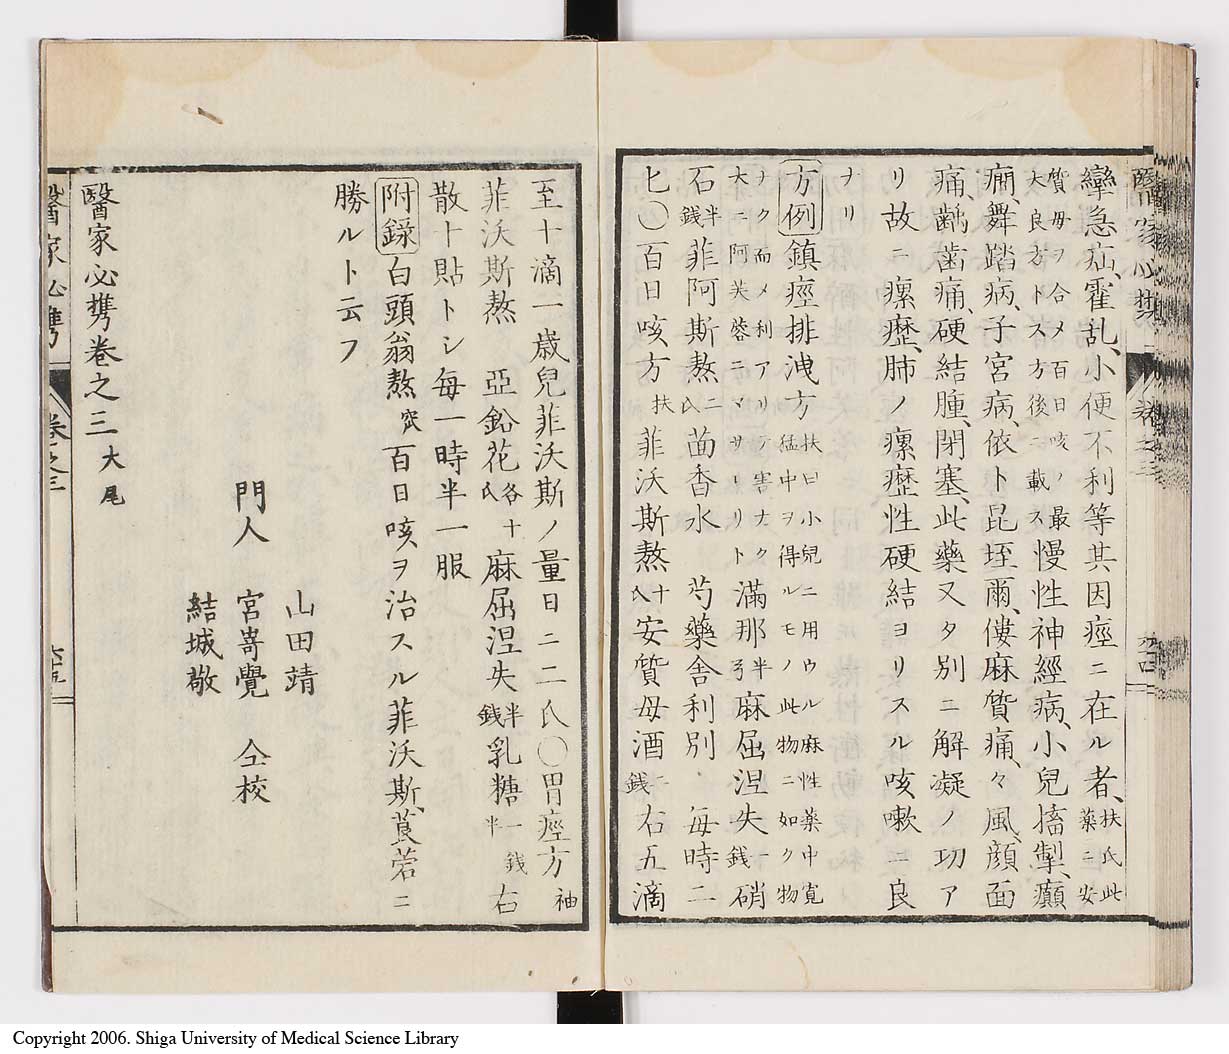 攣急疝、霍乱、小便不利等其因痙ニ在ル者、扶氏此薬ニ安
質母ヲ合〆百日咳ノ最大良方トス方後ニ載ス慢性神經病、小兒搐掣、癲
癇、舞踏病、子宮病、依卜昆垤爾、僂麻質痛、々風、顔面
痛、齲歯痛、硬結腫、閉塞、此藥又タ別ニ解凝ノ功ア
リ故ニ瘰癧、肺ノ瘰癧性硬結ヨリスル咳嗽ニ良
ナリ
方例 鎮痙排洩方 扶曰小兒ニ用ウル麻性薬中寛猛中ヲ得ルモノ此物ニ如ク物
ナク而〆利アリテ害ナク大ニ阿芙蓉ニマサレリト 滿那半弓 麻屈涅失銭 硝
石半銭 菲阿斯熬二氏 茴香水 芍藥舎利別 毎時二
匕〇百日咳方扶 菲沃斯熬十氏 安質母酒二銭 右五滴
至十滴一歳兒菲沃斯ノ量日ニ二氏〇胃痙方袖
菲沃斯熬 亞鉛花各十氏 麻屈涅失半銭 乳糖一銭半 右
散十貼トシ毎一時半一服
附録 白頭翁熬 百日咳ヲ治スル菲沃斯、莨菪ニ
勝ルト云フ
山田靖
門人 宮嵜覺 仝校
結城敬
醫家必携巻之三大尾
醫家必携 巻之三
Copyright 2006. Shiga University of Medical Science Library